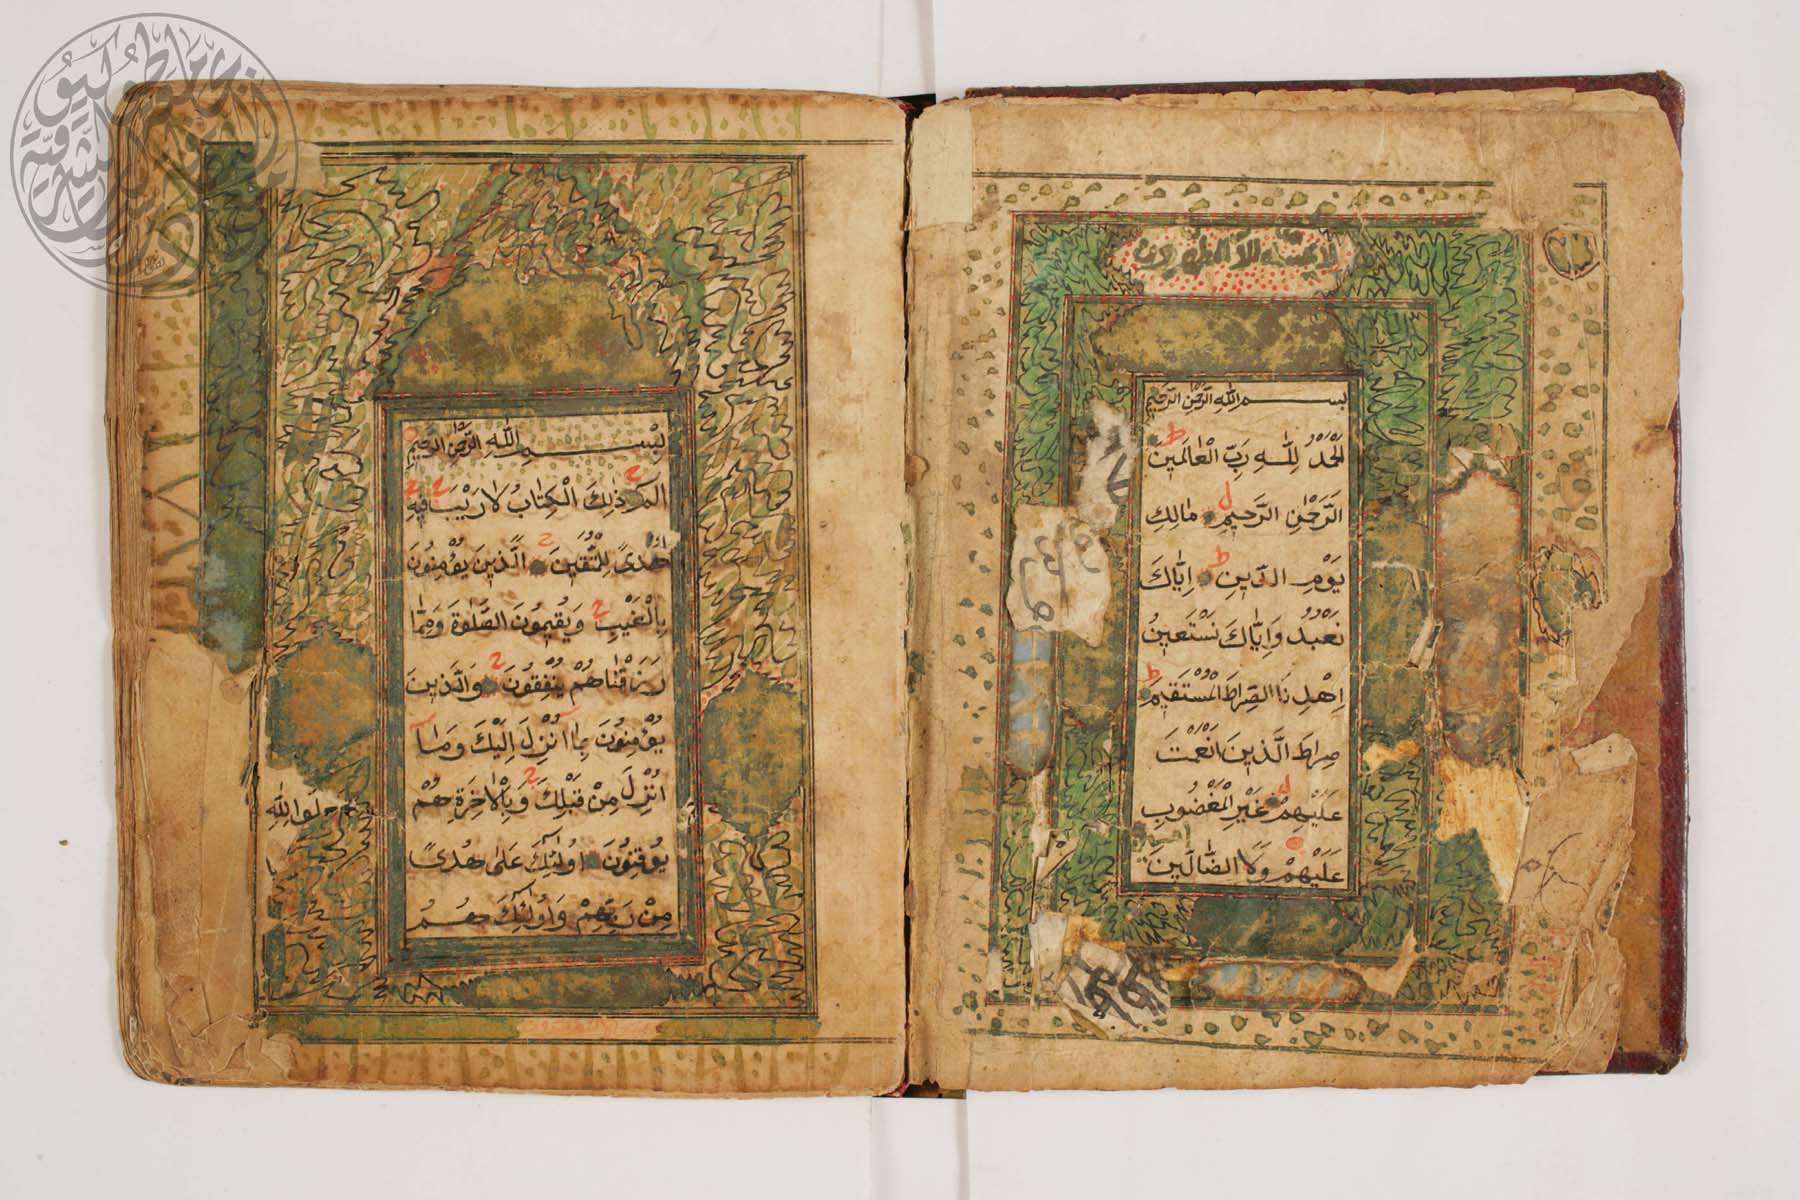 لا يمسه الا المطهرون
بسم الله الرحمن الرحيم
اَلْحَمْدُ لِلّٰهِ رَبِّ الْعَالَمِينَ
الرَّحْمٰنِ الرَّحِيمِ مَالِكِ
يَوْمِ الدِّينِ اِيَّاكَ
نَعْبُدُ وَاِيَّاكَ نَسْتَعِينُ
اِهْدِنَا الصِّرَاطَ الْمُسْتَقِيمَ
صِرَاطَ الَّذِينَ اَنْعَمْتَ
عَلَيْهِمْ غَيْرِ الْمَغْضُوبِ
عَلَيْهِمْ وَلَا الضَّالِّينَ
بِسْمِ اللهِ الرَّحْمٰنِ الرَّحِيمِ
الم ذٰلِكَ الْكِتَابُ لَا رَيْبَ فِيهِ
هُدًى لِلْمُتَّقِينَ الَّذِينَ يُؤْمِنُونَ
بِالْغَيْبِ وَيُقِيمُونَ الصَّلٰوةَ وَمِمَّا
رَزَقْنَاهُمْ يُنْفِقُونَ وَالَّذِينَ
يُؤْمِنُونَ بِمَا اُنْزِلَ اِلَيْكَ وَمَا
اُنْزِلَ مِنْ قَبْلِكَ وَبِالْاٰخِرَةِ هُمْ
يُوقِنُونَ اُولٰئِكَ عَلٰى هُدًى
مِنْ رَبِّهِمْ وَاُولٰئِكَ هُمُ